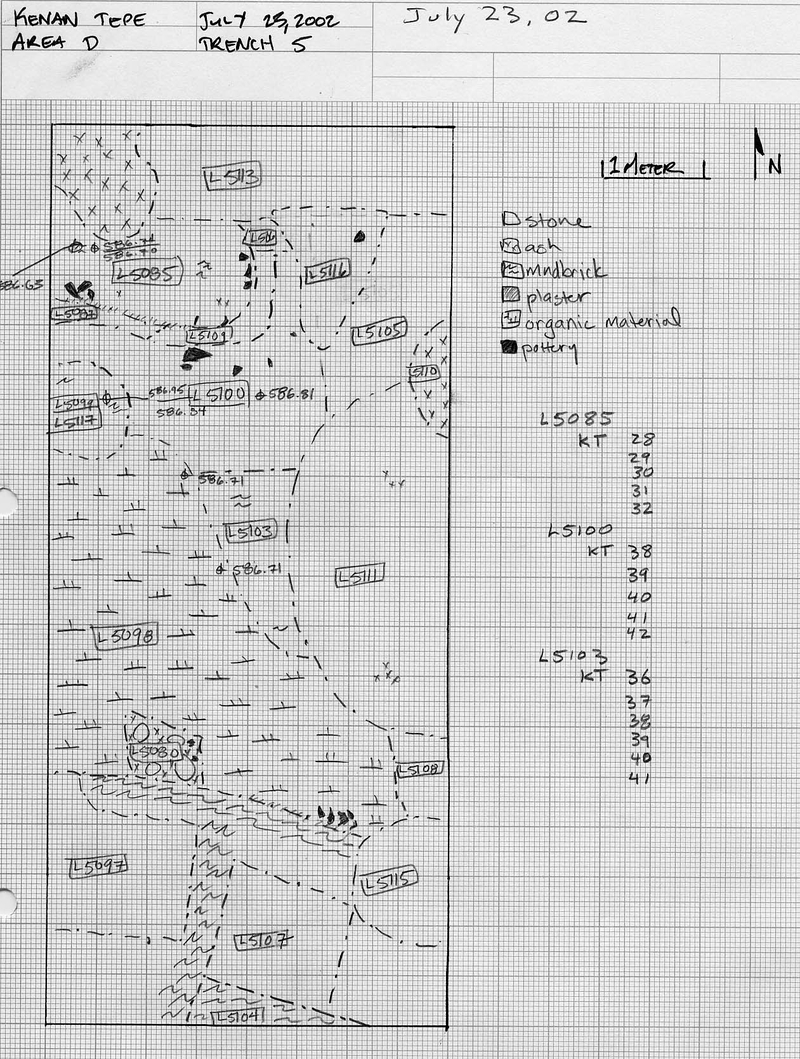 KENAN TEPE
AREA D
JULY 23, 2002
TRENCH 5
July 23, 02
L5113
1 METER
N
stone
ash
mudbrick
plaster
organic material
pottery
586.74
586.70
586.63
L5085
L5116
L5087
L5109
L5105
5110
586.95
L5100
586.81
586.84
L5099
L5117
586.71
L5103
586.71
L5111
L5098
L5080
L5108
L5097
L5115
L5107
L5104
L5085
KT 28
29
30
31
32
L5100
KT 38
39
40
41
42
L5103
KT 36
37
38
39
40
41